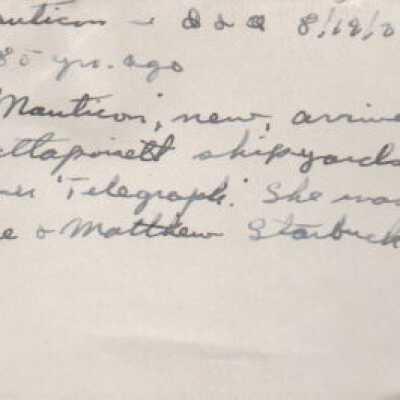 auticon - I & Q 8/19/0
85 yrs. ago
"Nauticon", new, arrive
attapoisett shipyards
mer 'Telegraph.' She was
e & Matthew Starbuck